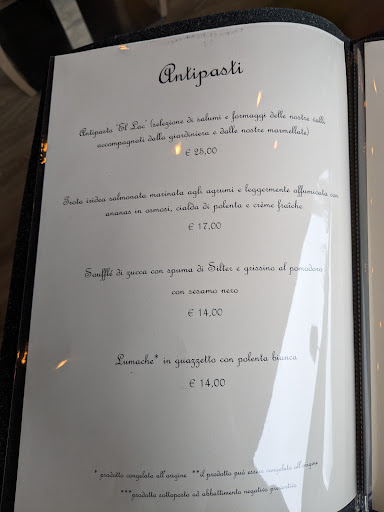 Antipasti
Antipasto 'El Lac' (selezione di salumi e formaggi delle nostre valli
accompagnati dalla giardiniera e dalle nostre marmellate)
€ 25,00
Trota iridea salmonata marinata agli agrumi e leggermente affumicata con
ananas in osmosi, cialda di polenta e crème fraîche
€ 17,00
Soufflé di zucca con spuma di Silter e grissino al pomodoro
con sesamo nero
€ 14,00
Lumache* in guazzetto con polenta bianca
€ 14,00
* prodotto congelato all'origine **il prodotto può essere congelato all'origine
***prodotto sottoposto ad abbattimento negativo preventivo